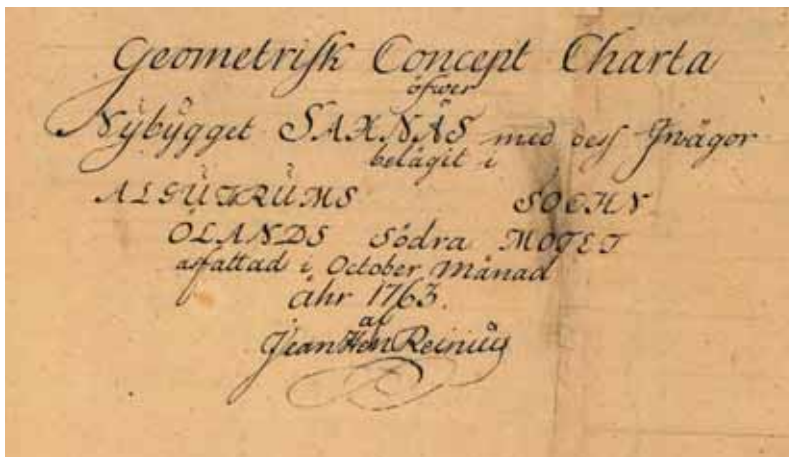 Geometrisk Concept Charta
öfwer
Nÿbÿgget SAXNÄS med dess Inägor
belägit i
ALGŬTRŬMS SOCHN
ÖLANDS Södra MOTET
affattad i October Månad
åhr 1763.
af
Jean Hen Reiniŭs